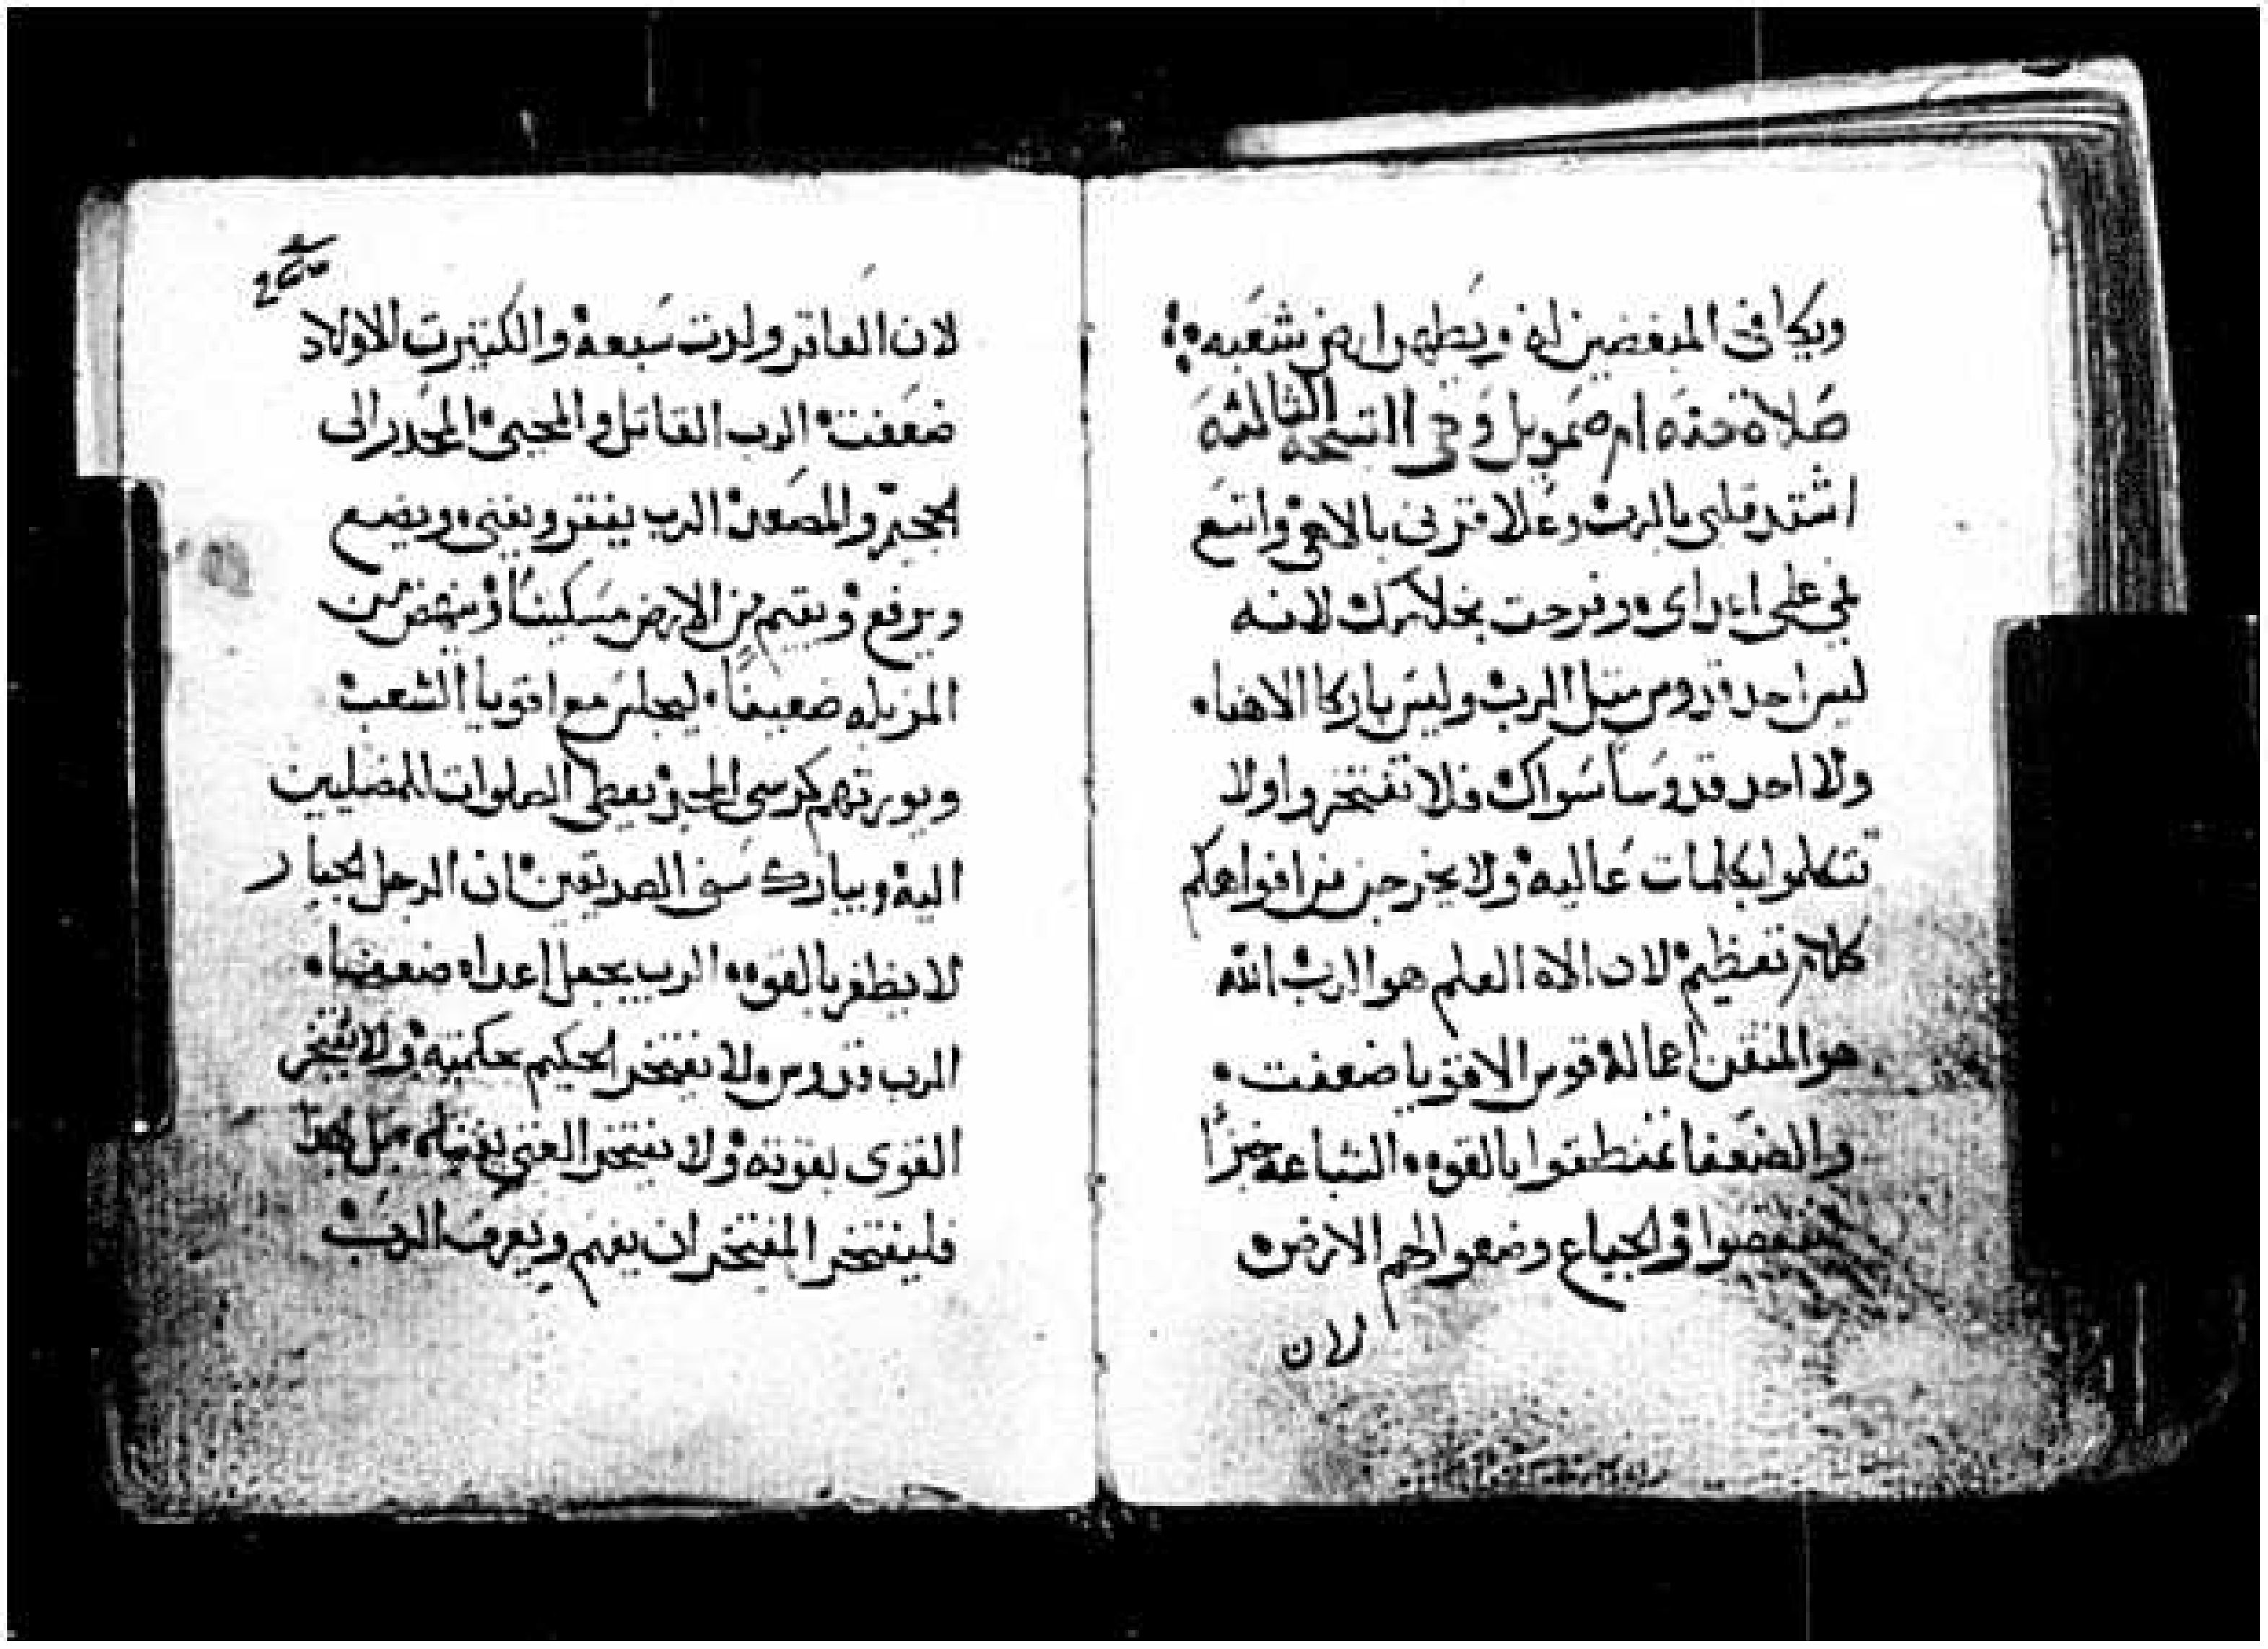 ويكافى المبغضين له ويطهر ارض شعبه
صلاة حنه ام صمويل وهى التسبحه الثالثه
اشتد قلبى بالرب وعلا قرنى بالاهى واتسع
فمى على اعداى وفرحت بخلاصك لانه
ليس احد قدوس مثل الرب وليس بارا كالاهنا
ولا احد قدوسا سواك فلا تفتخروا ولا
تتكلموا بكلمات عاليه ولا يخرجن من افواهكم
كلام تعظيم لان الاه العلم هو الرب الله
هو المتقن اعماله قوس الاقويا ضعفت
والضعفا تمنطقوا بالقوه الشباعه خبزا
وا والجياع وضعوا لهم الارض
لان
لان العاقر ولدت سبعه والكثيرت الاولاد
ضعفت الرب القاتل والمحيى المحدر الى
الجحيم والمصعد الرب يفقر ويغنى ويضع
ويرفع ويقيم من الارض مسكينا وينهض من
المزبله ضعيفا ليجلس مع اقويا الشعب
ويورثهم كرسى المجد يعطى الصلوات للمصليين
اليه ويبارك سنى الصديقين ان الرجل الجبار
لا يظفر بالقوه الرب يجعل اعداه ضعفا
الرب قدوس لا يفتخر الحكيم بحكمته ولا يفتخر
القوى بقوته ولا يفتخر الغنى بغناه بل بهذا
فليفتخر المفتخر ان يفهم ويعرف الرب